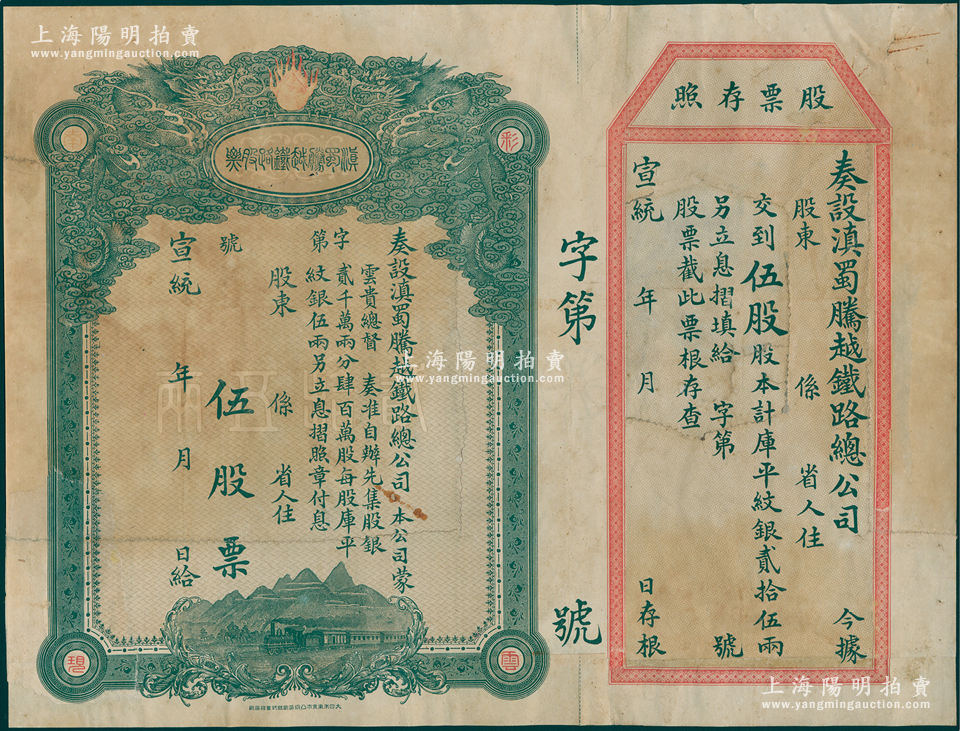 上海陽明拍賣
www.yangmingauction.com
股票存照
奏設滇蜀騰越鐵路總公司 今據
股東 係 省人住
交到伍股股本計庫平紋銀貳拾伍兩
另立息摺填給 字第 號
股票截此票根存查
宣統 年 月 日存根
字第 號
滇蜀騰越鐵路股票
奏設滇蜀騰越鐵路總公司 本公司蒙
雲貴總督 奏准自辦先集股銀
貳千萬兩分肆百萬股每股庫平
紋銀伍兩另立息摺照章付息
字第 號
股東 係 省人住
伍股票
宣統 年 月 日給
彩
雲
南
現
上海陽明拍賣
www.yangmingauction.com
上海陽明拍賣
www.yangmingauction.com